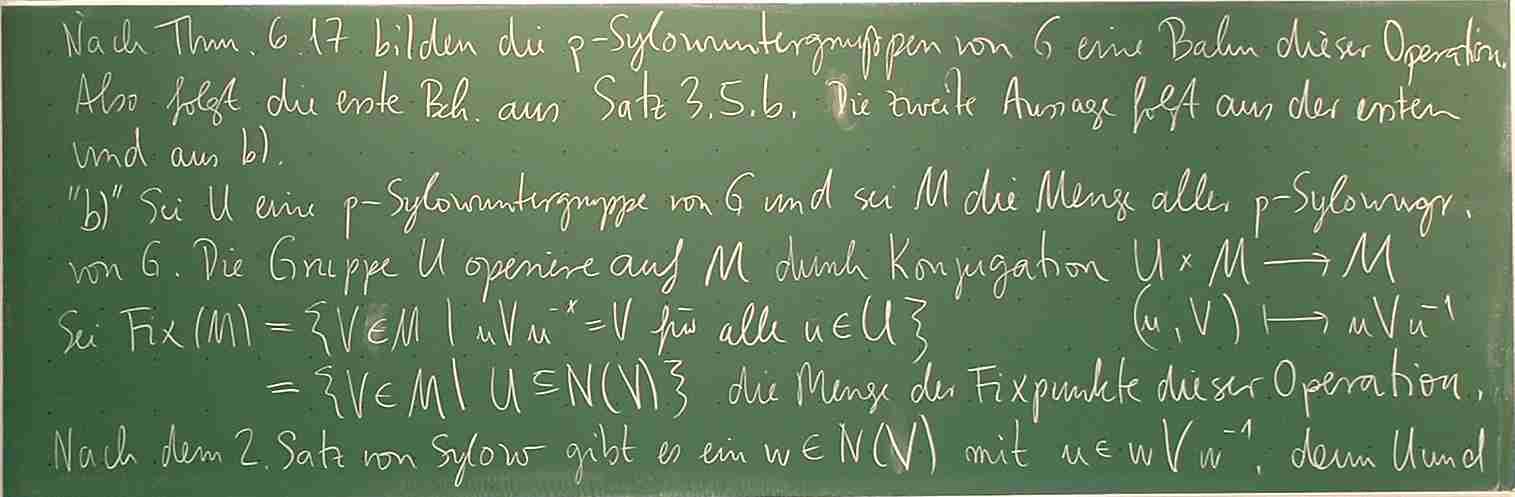 Nach Thm. 6.17 bilden die p-Sylowuntergruppen von G eine Bahn dieser Operation.
Also folgt die erste Beh. aus Satz 3.5.b. Die zweite Aussage folgt aus der ersten
und aus b).
"b)" Sei U eine p-Sylowuntergruppe von G und sei M die Menge aller p-Sylowugr.
von G. Die Gruppe U operiere auf M durch Konjugation U × M ⟶ M
Sei Fix(M) = {V ∈ M | uVu⁻ˣ = V für alle u ∈ U} (u, V) ⟼ uVu⁻¹
= {V ∈ M | U ⊆ N(V)} die Menge der Fixpunkte dieser Operation.
Nach dem 2. Satz von Sylow gibt es ein w ∈ N(V) mit u ∈ wVw⁻¹, denn U und